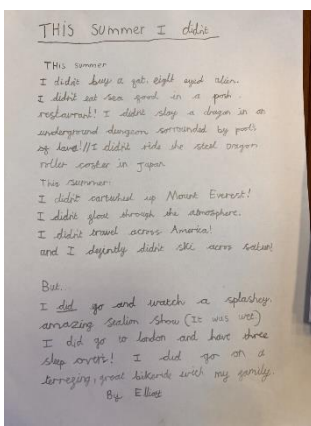 THIS Summer I didn't
THIS summer
I didn't buy a pet, eight eyed alien.
I didn't eat sea food in a posh
restaurant! I didn't slay a dragon in an
underground dungeon sorrounded by pools
of lava!// I didn't ride the steel dragon
roller coster in Japan
This summer
I didn't up Mount Everest!
I didn't float through the atmosphere.
I didn't travel across America!
and I didn't ski across
But.
I did go and watch a splashey
amazing sealion show (It was wet)
I did go to london and have three
sleep overs! I did go on a
great bikeride with my family.
By Elliot